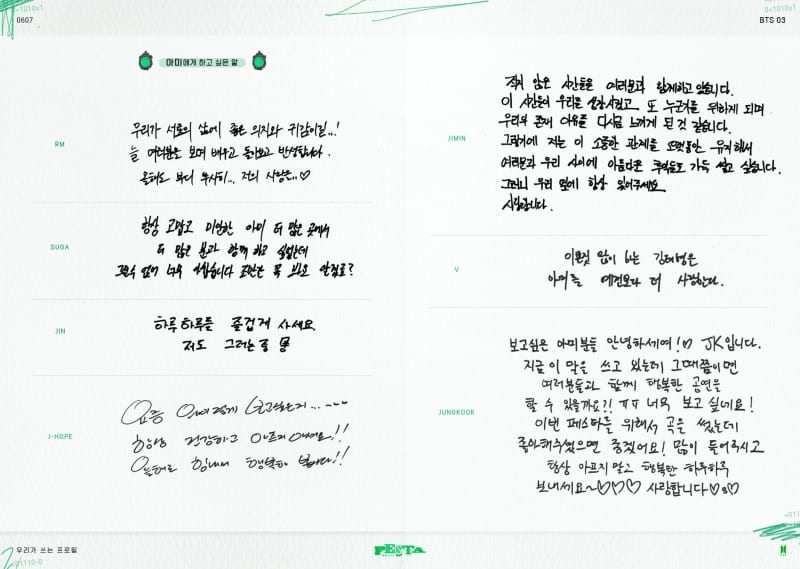 0607
BTS 03
아미에게 하고 싶은 말
RM
우리가 서로의 삶에 좋은 의지와 귀감이길...!
늘 여러분을 보며 배우고 돌아보고 반성합니다.
올해도 부디 무사히... 저의 사랑은..♡
SUGA
항상 고맙고 미안한 아미 더 많은 곳에서
더 많은 분과 함께 하고 싶었는데
그럴 수 없어 너무 아쉽습니다 조만간 꼭 봐요 알겠죠?
JIN
하루하루를 즐겁게 사세요.
저도 그러는 중
J-HOPE
요즘 아미 굉장히 보고싶은지...~~~
항상 건강하고 아프지 마세요!!
올해도 힘내서 행복하 봅시다!!
JIMIN
적지 않은 시간들을 여러분과 함께하고 있습니다.
이 시간들이 우리를 성장시켰고 또 누군가를 위하게 되며
우리의 존재 이유를 다시금 느끼게 된 것 같습니다.
그렇기에 저는 이 소중한 관계를 오랫동안 유지해서
여러분과 우리 사이에 아름다운 추억들로 가득 쌓고 싶습니다.
그러니 우리 옆에 항상 있어주세요
사랑합니다.
V
이러쿵 많이 하는 김태형은
아미를 예전보다 더 사랑한다.
JUNGKOOK
보고싶은 아미분들 안녕하세여!♡ JK입니다.
지금 이 말을 쓰고 있는데 그때쯤이면
여러분들과 함께 행복한 공연을
할 수 있을까요?! ㅠㅠ 너무 보고 싶네요!
이번 페스타를 위해서 곡을 썼는데
좋아해주셨으면 좋겠어요! 많이 들어주시고
항상 아프지 말고 행복한 하루하루
보내세요~♡♡♡♡ 사랑합니다♡♡♡
우리가 쓰는 프로필
FESTA